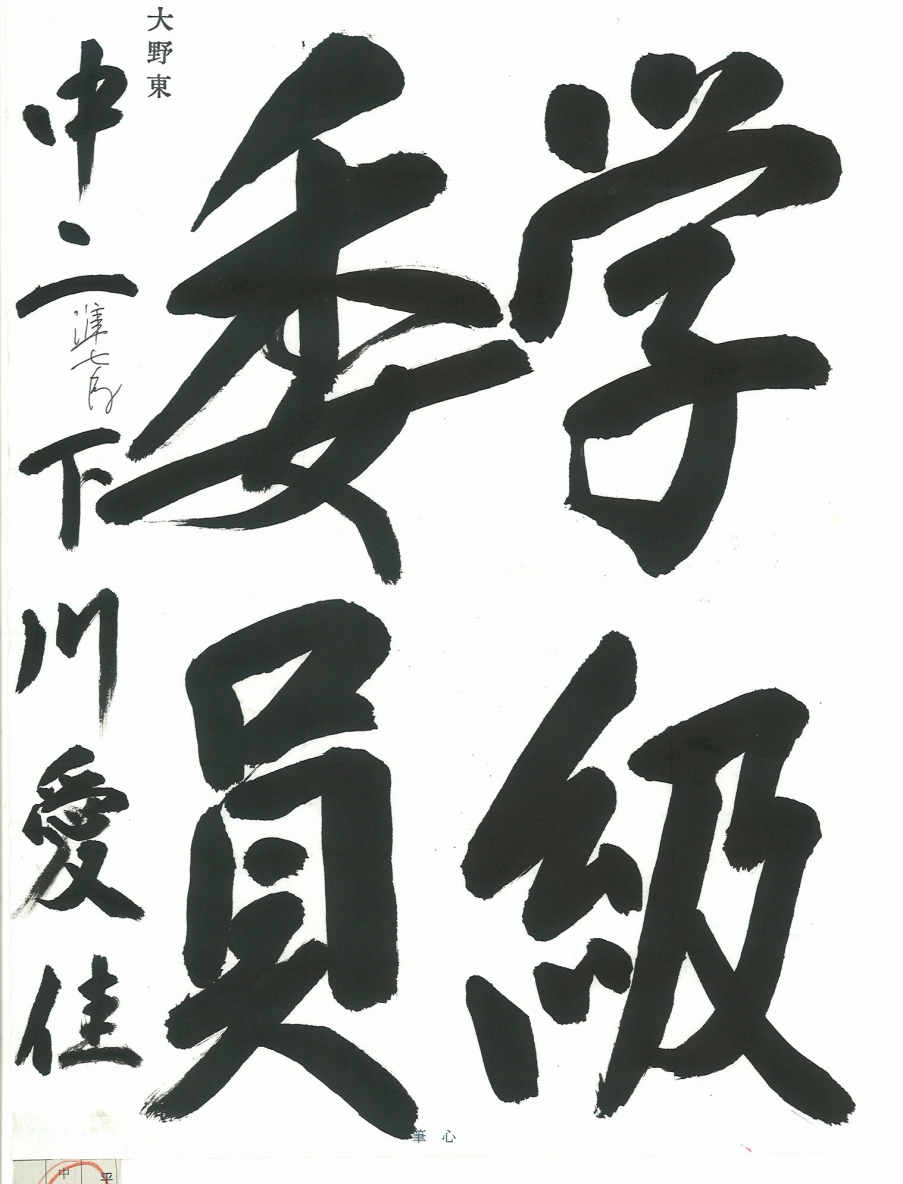 学級
委員
大野東
中二 下川愛佳
準七段
筆心
中
平